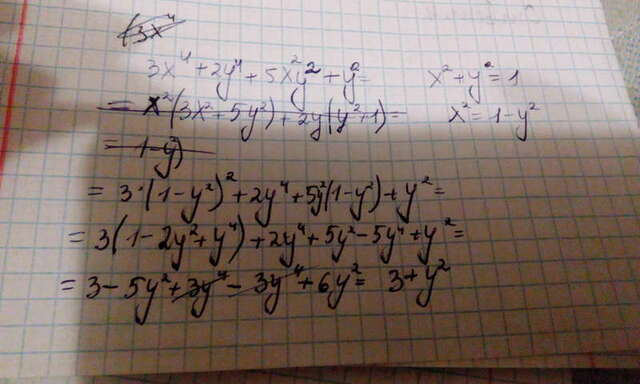 (3x⁴
3x⁴ + 2y⁴ + 5x²y² + y² = x² + y² = 1
= x²(3x² + 5y²) + 2y(y² + 1) = x² = 1 - y²
= 1 - y²)
= 3·(1 - y²)² + 2y⁴ + 5y²(1 - y²) + y² =
= 3(1 - 2y² + y⁴) + 2y⁴ + 5y² - 5y⁴ + y² =
= 3 - 5y² + 3y⁴ - 3y⁴ + 6y² = 3 + y²